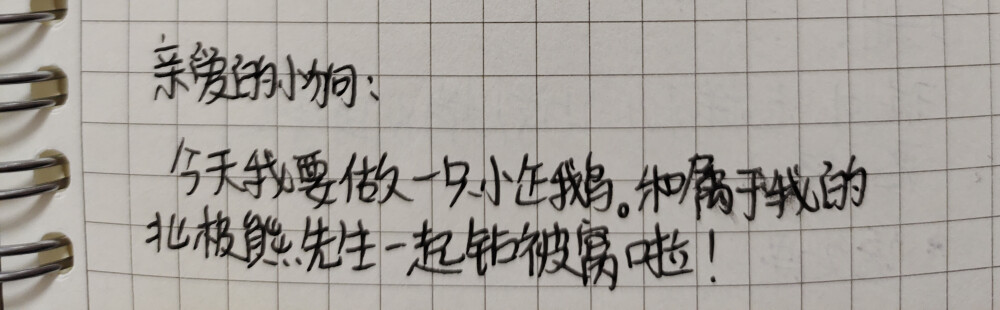 亲爱的小狗：
今天我要做一只小企鹅。和属于我的
北极熊先生一起钻被窝啦！